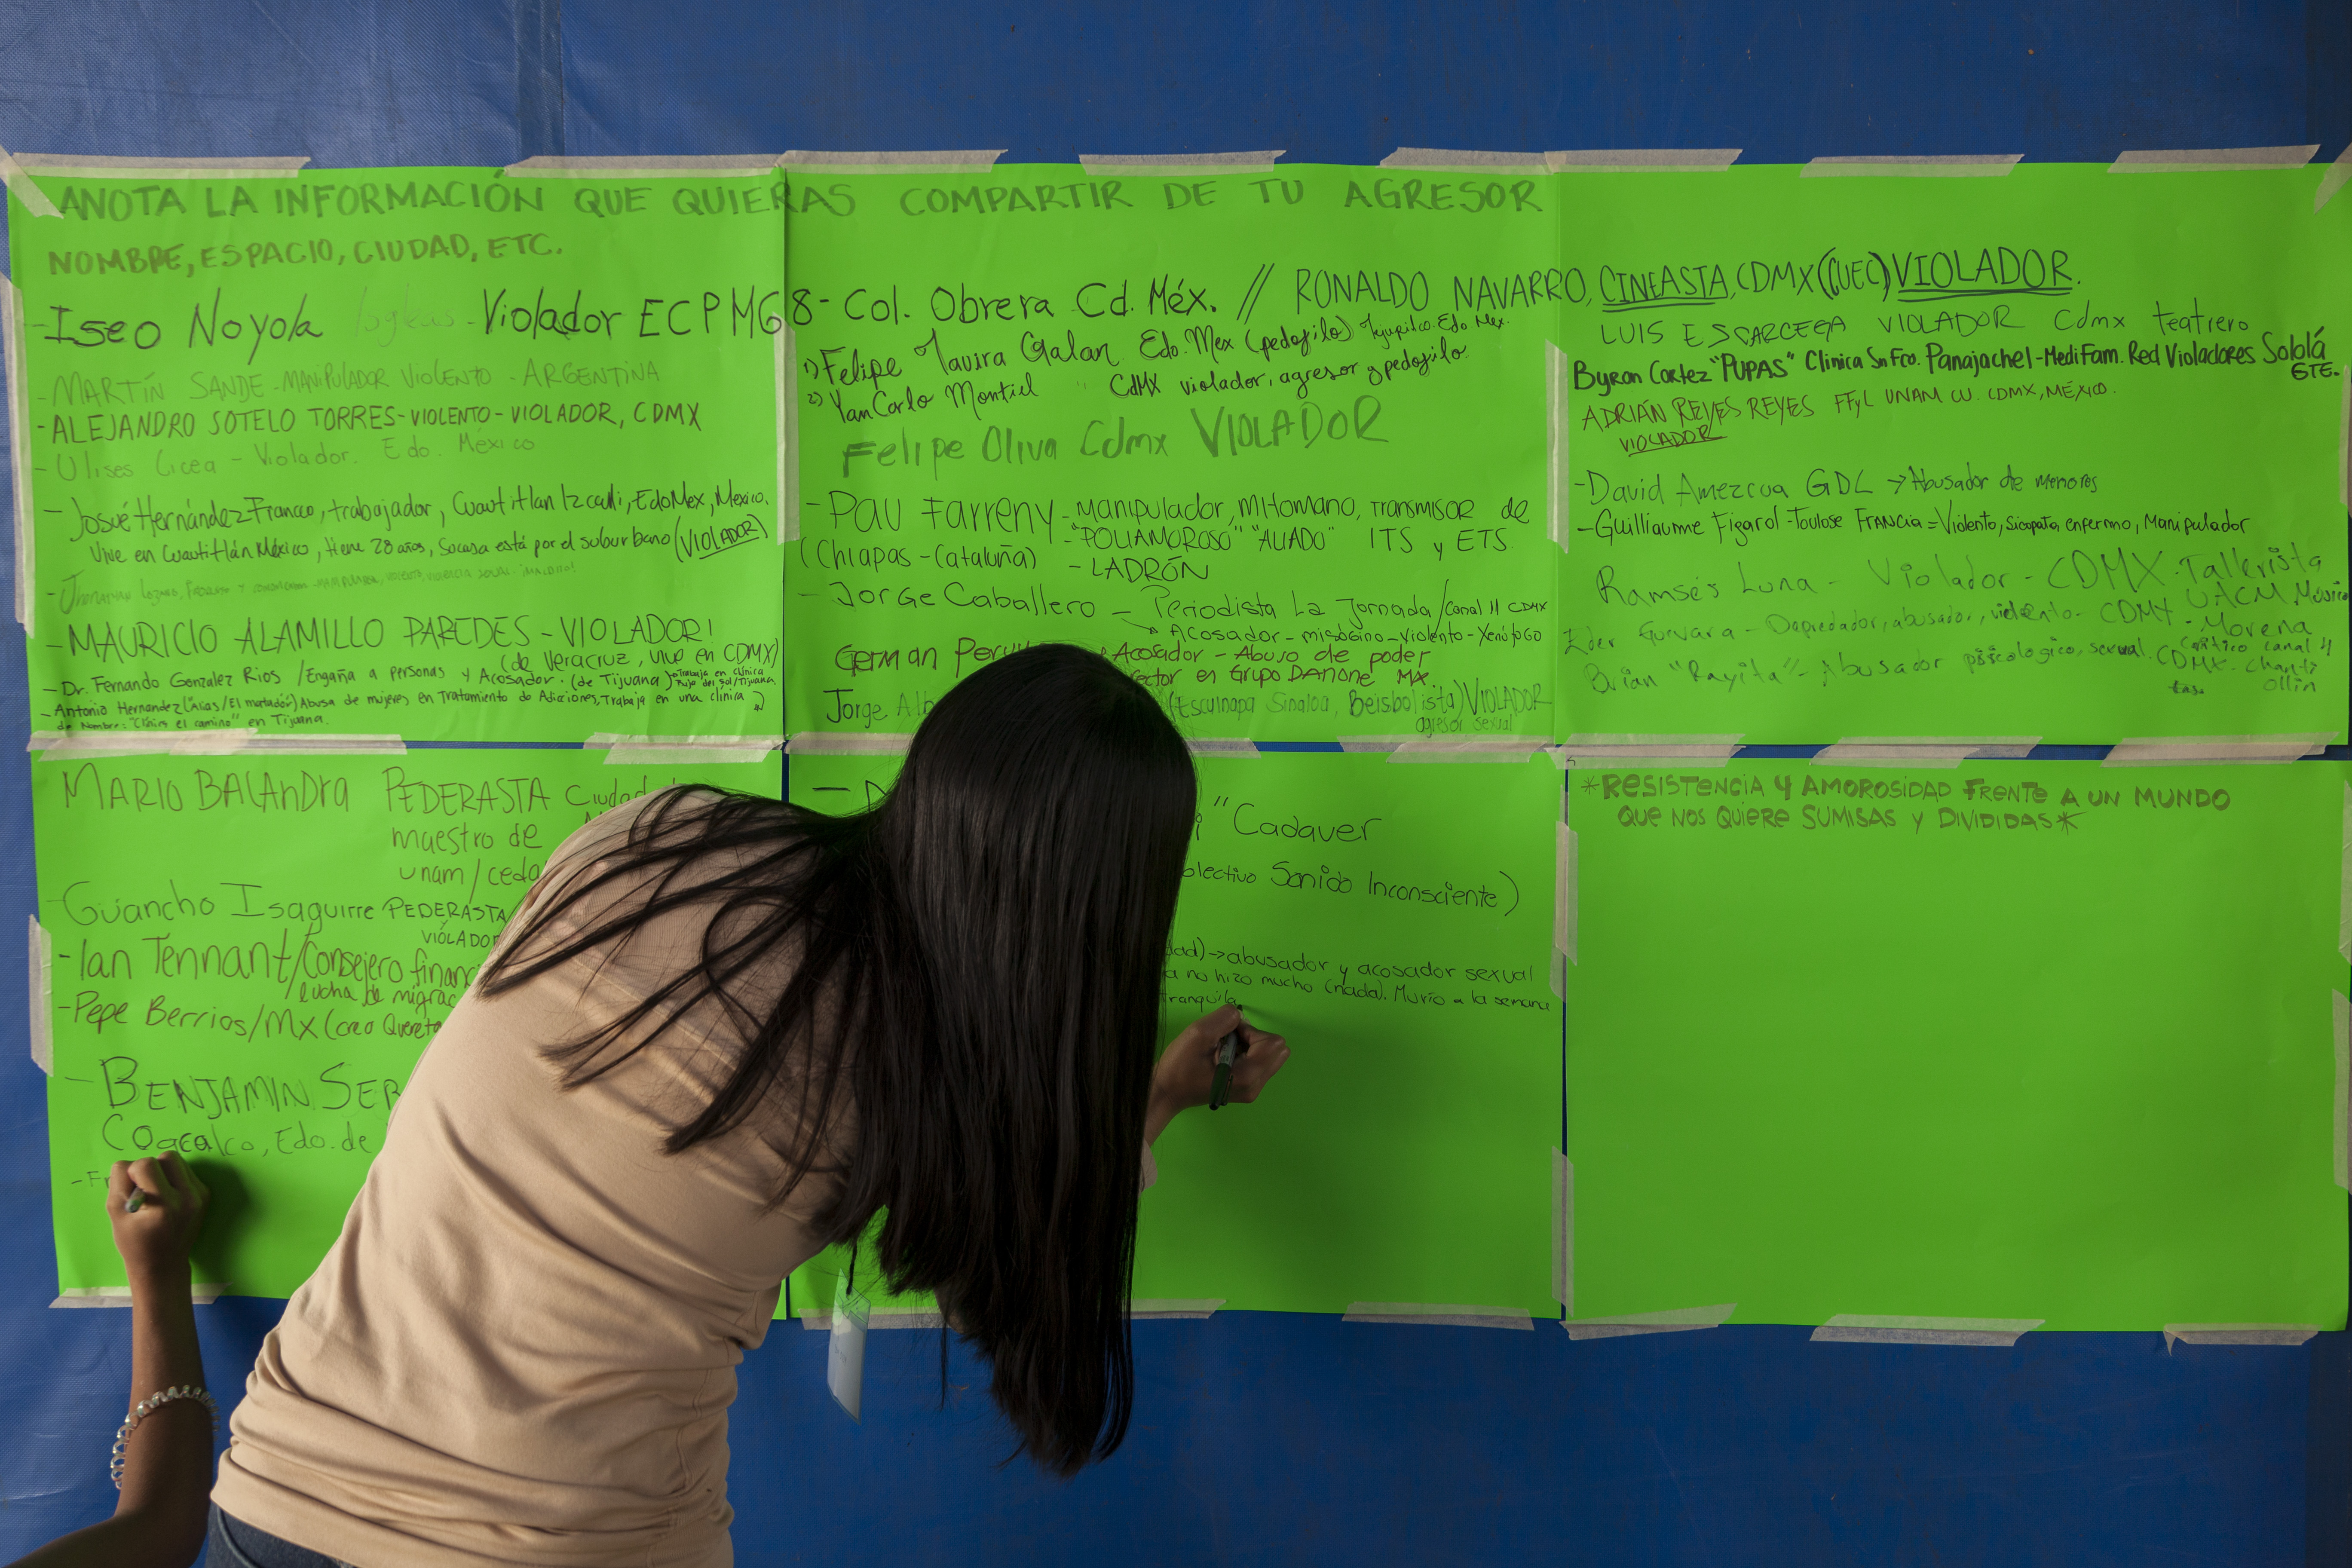 ANOTA LA INFORMACIÓN QUE QUIERAS COMPARTIR DE TU AGRESOR
NOMBRE, ESPACIO, CIUDAD, ETC.
- Iseo Noyola - Violador ECPM68 - Col. Obrera Cd. Méx. // RONALDO NAVARRO, CINEASTA, CDMX (CUEC) VIOLADOR.
- MARTÍN SANDE - MANIPULADOR VIOLENTO - ARGENTINA
- ALEJANDRO SOTELO TORRES - VIOLENTO - VIOLADOR, CDMX
- Ulises Licea - Violador. Edo. México
- Josué Hernández Franco, trabajador, Cuautitlan Izcalli, EdoMex, Mexico.
Vive en Cuautitlán México, tiene 28 años, su casa está por el suburbano (VIOLADOR)
- MAURICIO ALAMILLO PAREDES - VIOLADOR!
(de Veracruz, vive en CDMX)
- Dr. Fernando Gonzalez Rios / Engaña a personas y Acosador. (de Tijuana)
- Antonio Hernandez (Alias/El matador) Abusa de mujeres en Tratamiento de Adicciones, Trabaja en una clínica
en Tijuana.
1) Felipe Tavira Galan Edo. Mex (pedofilo)
2) Yan Carlo Montiel " CdMX violador, agresor y pedofilo.
Felipe Oliva Cdmx VIOLADOR
- Pau Farreny - manipulador, mitomano, transmisor de
- "POLIAMOROSO" "ALIADO" ITS y ETS.
(Chiapas - Cataluña) - LADRÓN
- Jorge Caballero - Periodista La Jornada / Canal 11 CDMX
Acosador - misógino - violento - Xenófogo
German
Acosador - Abuso de poder
en Grupo DANONE MX.
Jorge (Escuinapa Sinaloa, Beisbolista) VIOLADOR
agresor sexual
LUIS ESCARCEGA VIOLADOR Cdmx teatrero
Byron Cortez "PUPAS" Clinica Sn Fco. Panajachel - MediFam. Red Violadores Sololá
GTE.
ADRIÁN REYES REYES FFyL UNAM CU. CDMX, MÉXICO.
VIOLADOR
- David Amezcua GDL → Abusador de menores
- Guilliaume Figarol - Toulose FRANCIA = Violento, Sicopata, enfermo, Manipulador
Ramsés Luna - Violador - CDMX - Tallerista
UACM
Eder Guevara - Depredador, abusador, violento - CDMX - Morena
Brian "Rayita" - Abusador psicologico, sexual. CDMX
MARIO BALANDRA PEDERASTA Ciudad
maestro de
unam /
Guancho Isaguirre PEDERASTA
VIOLADOR
- Ian Tennant / Consejero
lucha de
- Pepe Berrios / Mx (creo
- BENJAMIN
Coacalco, Edo. de
"Cadaver
Sonido Inconsciente)
→ abusador y acosador sexual
no hizo mucho (nada). Murió a la semana
tranquila
*RESISTENCIA Y AMOROSIDAD FRENTE A UN MUNDO
QUE NOS QUIERE SUMISAS Y DIVIDIDAS*